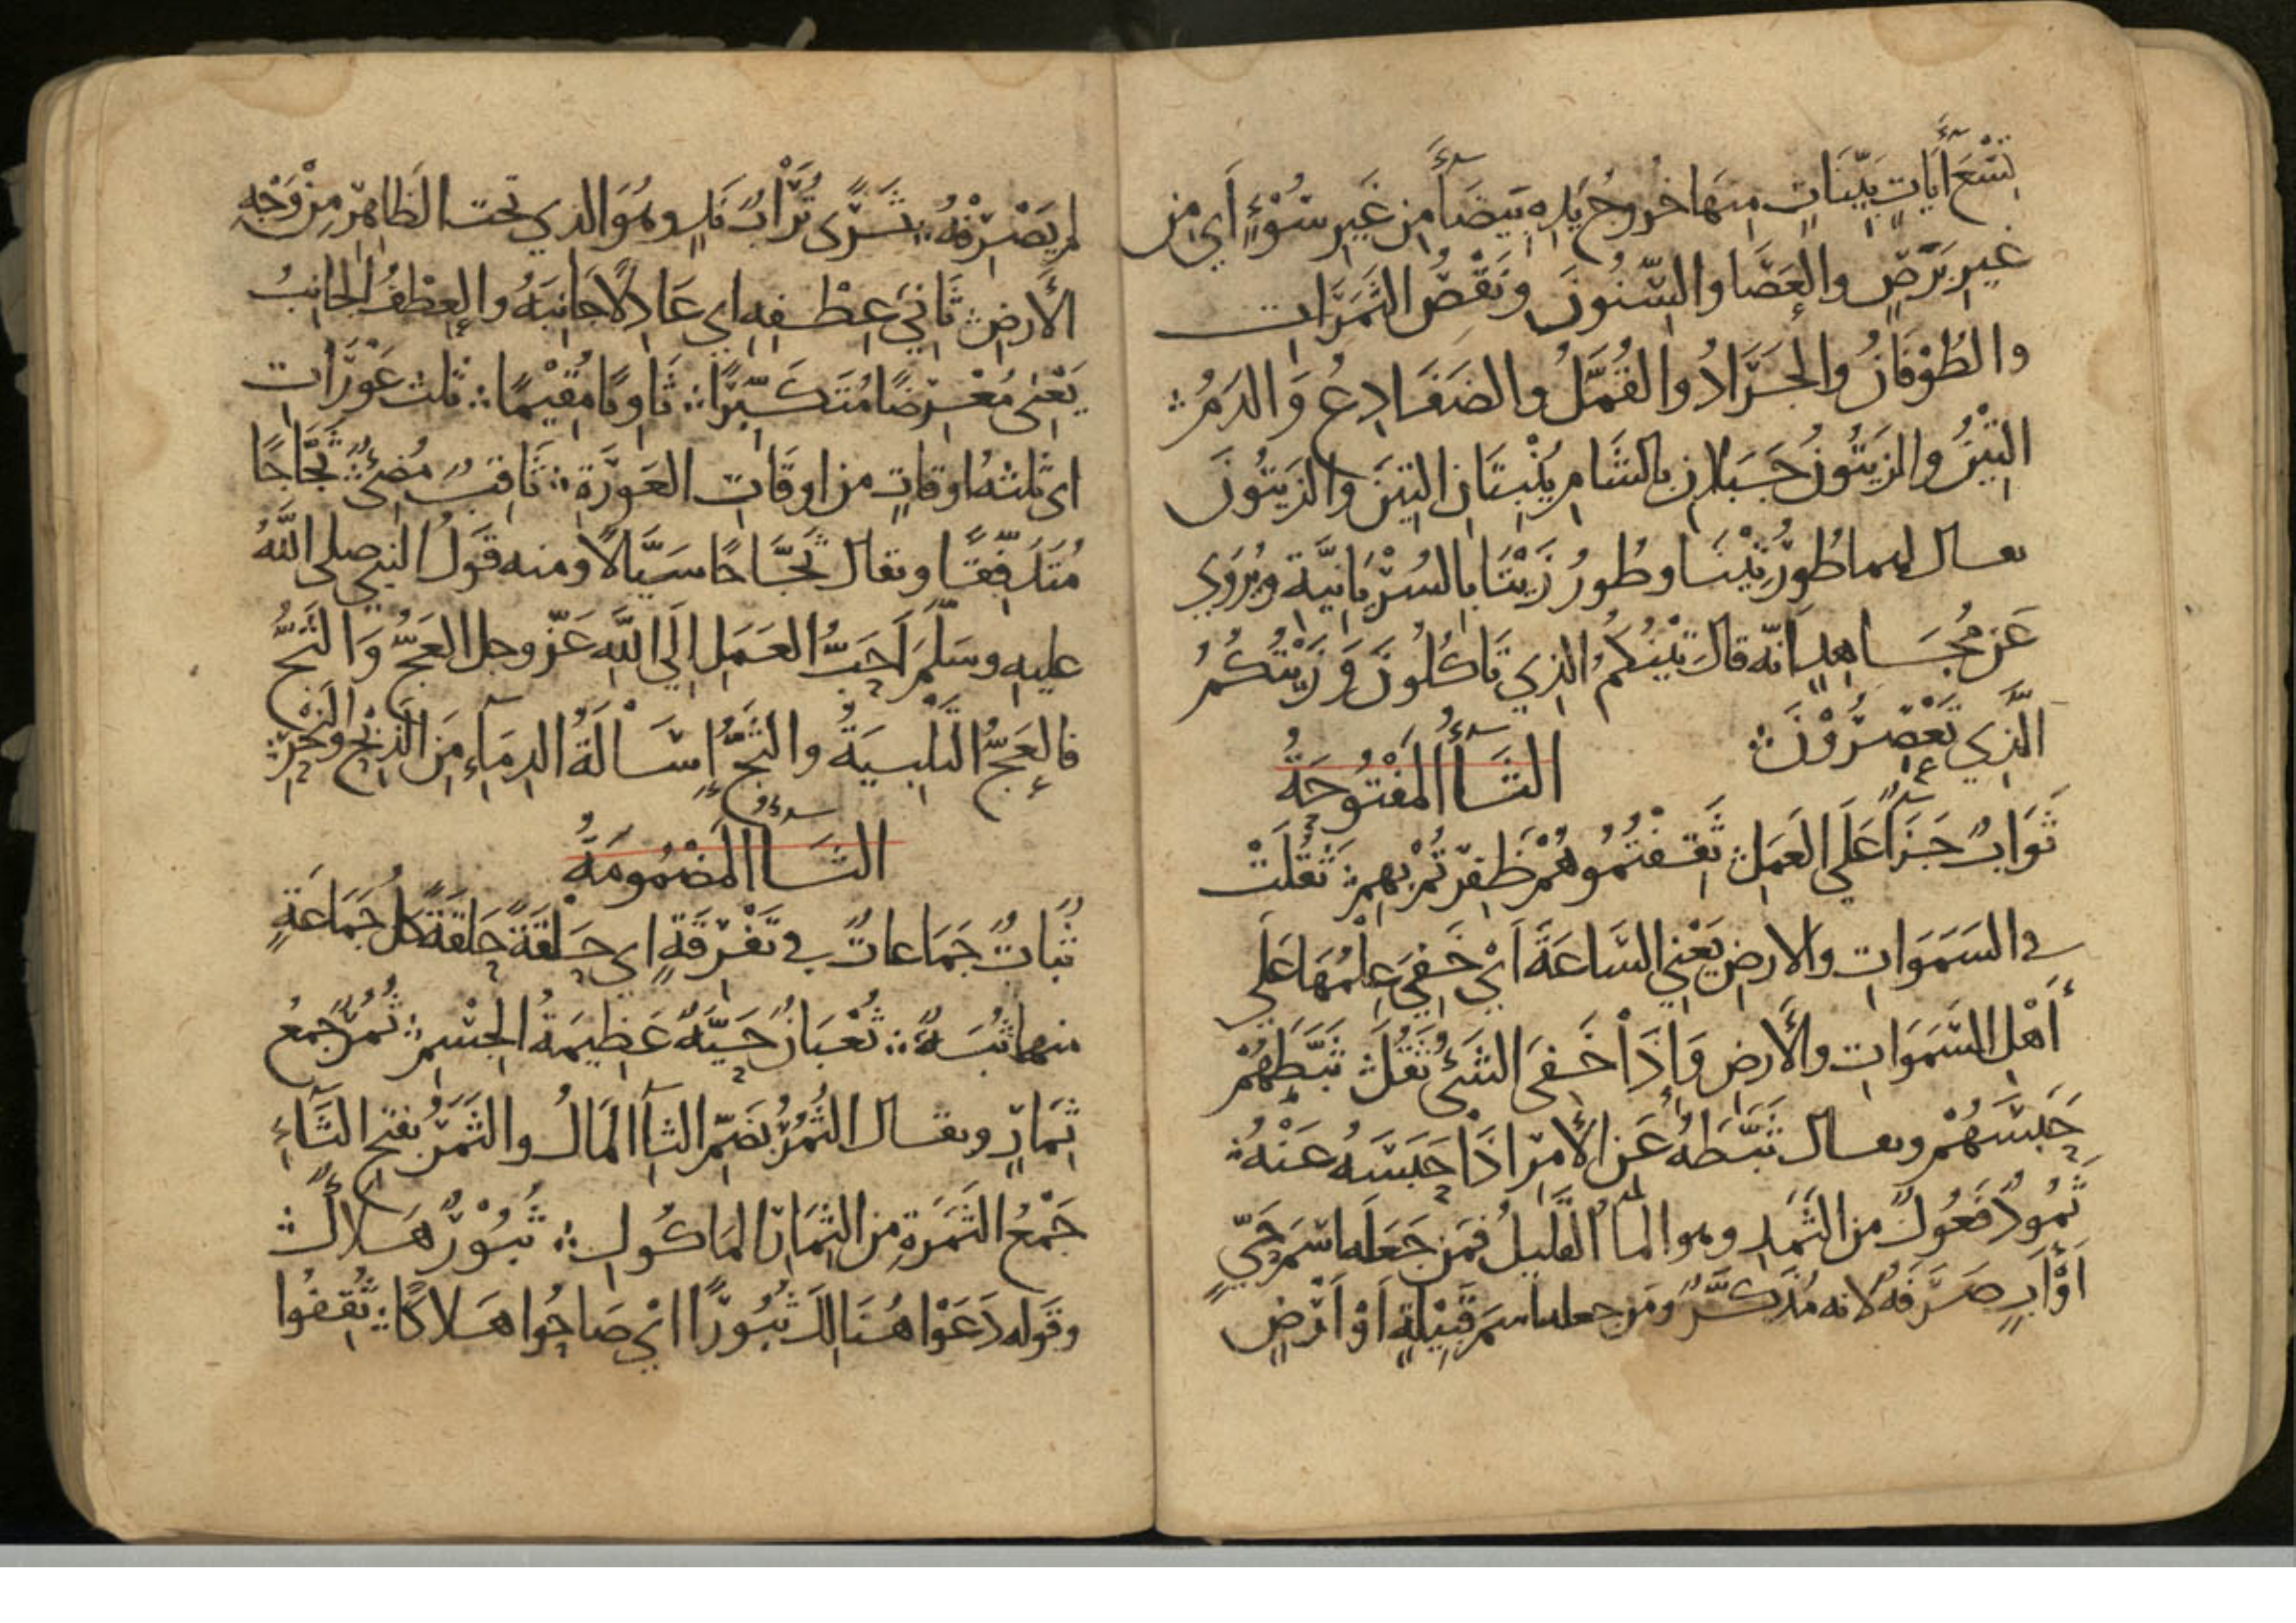 تِسْعَ آيَاتٍ بَيِّنَاتٍ مِنهَا خُروجُ يَدِهِ بَيضَآءَ مِن غَيرِ سُوْءٍ أَي مِن
غيرِ بَرَصٍ والعَصَا والسِّنُونَ ونَقْصُ الثَمَرَات
والطُوْفَانُ والجَرَادُ والقُمَّلُ والضَفَادِعُ وَالدَمُ ۞
التِيْنُ والزَيتُونُ جَبَلانِ بالشَامِ يُنْبِتَانِ التِينَ والزَيتُونَ
يقال لهما طُورُ تِيْنَا وطُورُ زَيْتَا بالسُرْيَانِيَّة ويُرْوَي
عَن مُجَاهِدٍ انّه قالَ تِيْنُكُم الذِي تَاكُلُونَ وَزَيْتُكُمُ
الَّذِي تَعْصِرُوْنَ ۞ الثَآءُ المَفْتُوحَةُ
ثَوَابٌ جَزَآءٌ عَلَي العَمَلِ ۞ ثَقِفْتُمُوهُمْ ظَفِرْتُمْ بِهِم ۞ ثَقُلَتْ
في السَمَوَاتِ والارضِ يَعْنِي السَّاعَةَ ايْ خَفِيَ عِلْمُهَا عَلَي
أَهْلِ السَّمَوَاتِ والأَرضِ وَإِذَا خَفِيَ الشَئُ ثَقُلَ ۞ ثَبَّطَهُمْ
حَبَسَهُمْ ويقال ثَبَّطَهُ عَنِ الأَمرِ اذَا حَبَسَهُ عَنْهُ ۞
ثَمُودُ فَعُولٌ من الثَمَدِ وهو المآءُ القَليلُ فمَن جَعَلَه اسْمَ حَيٍّ
اَوْ اَبٍ صَرَفَهُ لانه مُذَكَّرٌ ومَن جعله اسمَ قَبِيْلَةٍ اَوْ اَرْضٍ
لم يَصْرِفْهُ ۞ ثَرَى تُرَابٌ نَدٍ وهُوَ الذي تحت الظَاهِرِ مِنْ وَجْهِ
الأَرضِ ۞ ثَانِيَ عِطْفِهِ اي عَادِلًا جَانِبَهُ والعِطْفُ الجَانِبُ
يَعْنِي مُعْرِضًا مُتَكَبِّرًا ۞ ثَاوِيًا مُقِيْمًا ۞ ثلث عَوْرَات
اى ثلثهُ اوقاتٍ من اوقَاتِ العَوْرَةِ ۞ ثَاقِبٌ مُضِئٌ ۞ ثَجَّاجًا
مُتَدَفِّقًا ويقال ثَجَّاجًا سَيَّالًا ومنه قَولُ النبي صلي اللَّهُ
عليهِ وسَلَّمَ اَحَبُّ العَمَلِ إِلَي اللَّهِ عَزّ وجل العَجُّ وَالثَجُّ
فالعَجُّ التَلْبِيَةُ والثَجُّ إِسَالَةُ الدِمَآءِ مِنَ الذَبْحِ والنَحْرِ ۞
الثَآءُ المَضْمُومَةُ
ثُبَاتٌ جَمَاعاتٌ في تَفْرِقَةٍ اي حَلْقَةً حَلقَةً كل جَمَاعَةٍ
منها ثُبَةٌ ۞ ثُعْبَانٌ حَيَّةٌ عَظِيمَةُ الجِسْمِ ۞ ثُمُرٌ جَمعُ
ثِمَارٍ ويقال الثُمُرُ بضَمِّ الثآءِ المَالُ والثَمَرُ بفتحِ الثَّآءِ
جَمْعُ الثَمَرَةِ مِن الثِمَارِ المَاكُولِ ۞ ثُبُوْرٌ هَلاكٌ ۞
وقَوله دَعَوْا هُنَالِكَ ثُبُوْرًا ايْ صَاحُوا هَلاكًا ۞ ثُقِفُوا